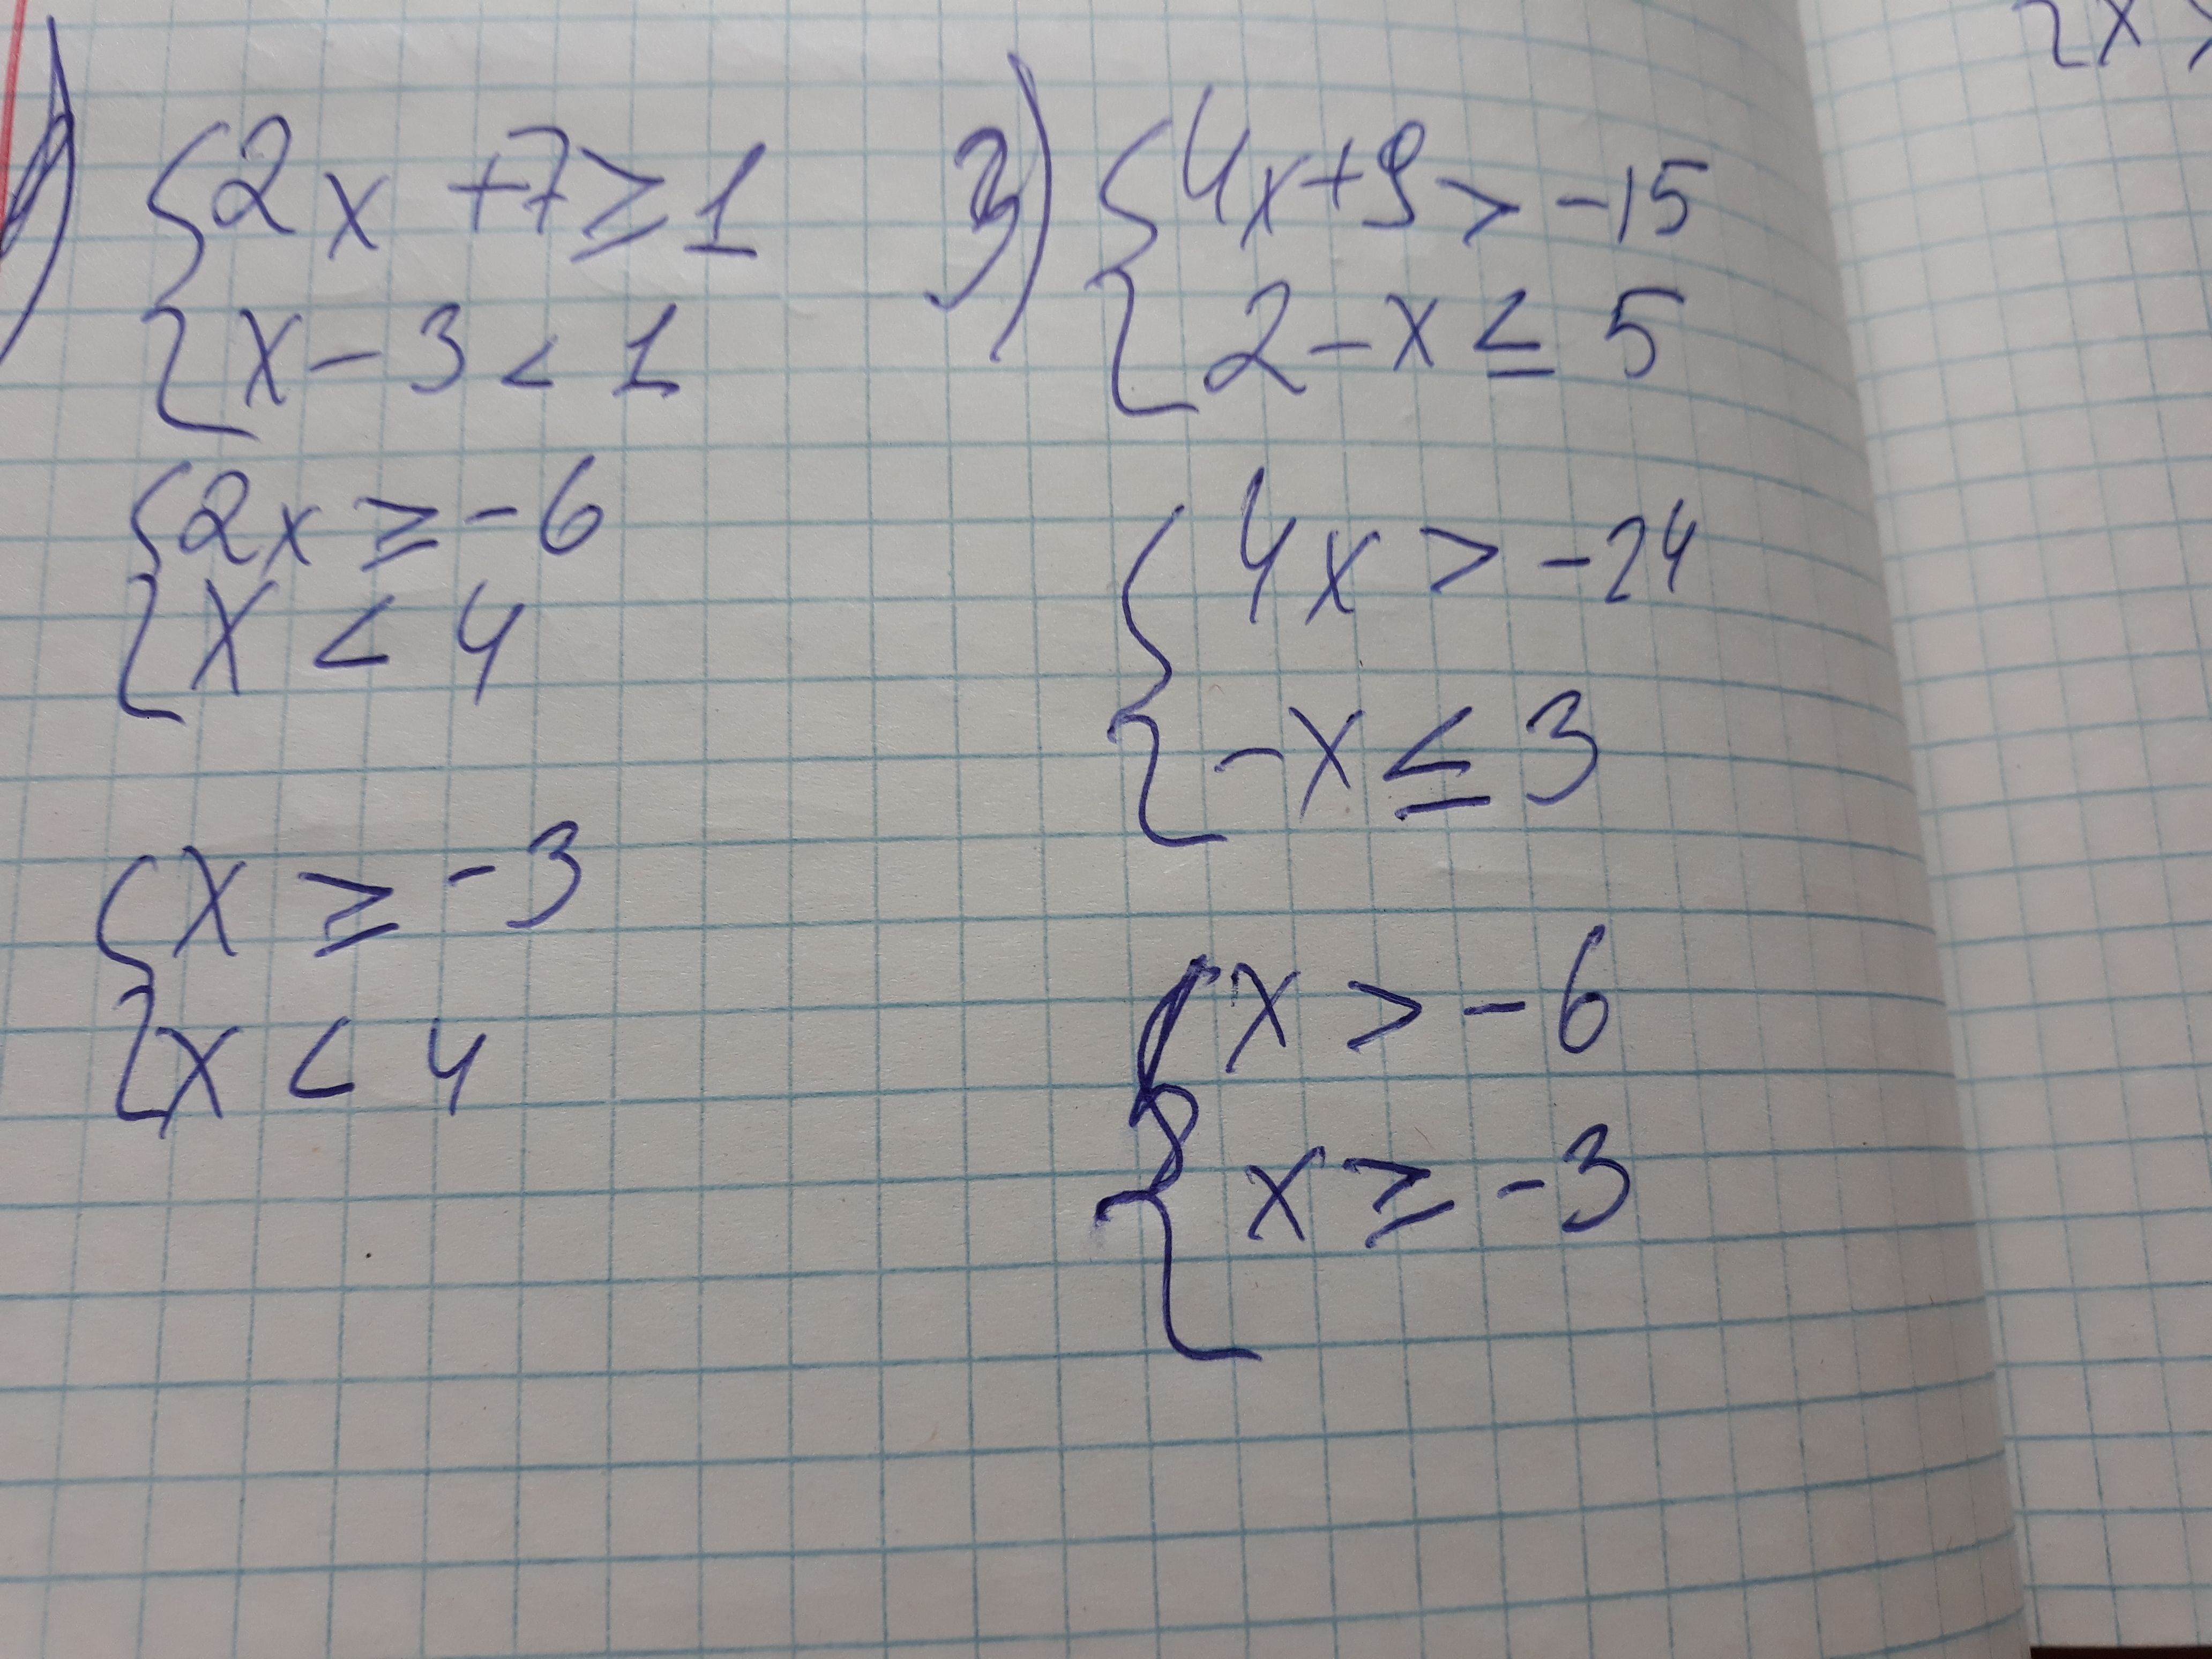 ) { 2x + 7 ≥ 1
{ x - 3 < 1
{ 2x ≥ -6
{ x < 4
{ x ≥ -3
{ x < 4
3) { 4x + 9 > -15
{ 2 - x ≤ 5
{ 4x > -24
{ -x ≤ 3
{ x > -6
{ x ≥ -3
{ x >